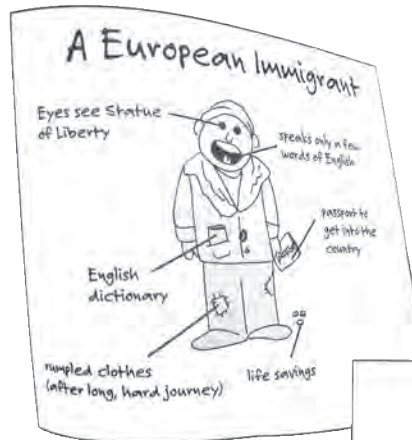 A European Immigrant
Eyes see Statue
of Liberty
speaks only a few
words of English
passport to
get into the
country
English
dictionary
rumpled clothes
(after long, hard journey)
life savings